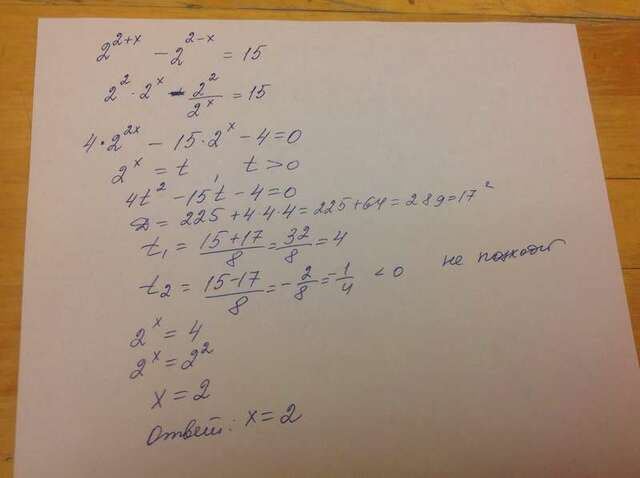 2^{2+x} - 2^{2-x} = 15
2^2 · 2^x - 2^2/2^x = 15
4 · 2^{2x} - 15 · 2^x - 4 = 0
2^x = t, t > 0
4t^2 - 15t - 4 = 0
D = 225 + 4·4·4 = 225 + 64 = 289 = 17^2
t_1 = (15+17)/8 = 32/8 = 4
t_2 = (15-17)/8 = -2/8 = -1/4 < 0 не подходит
2^x = 4
2^x = 2^2
x = 2
Ответ: x = 2